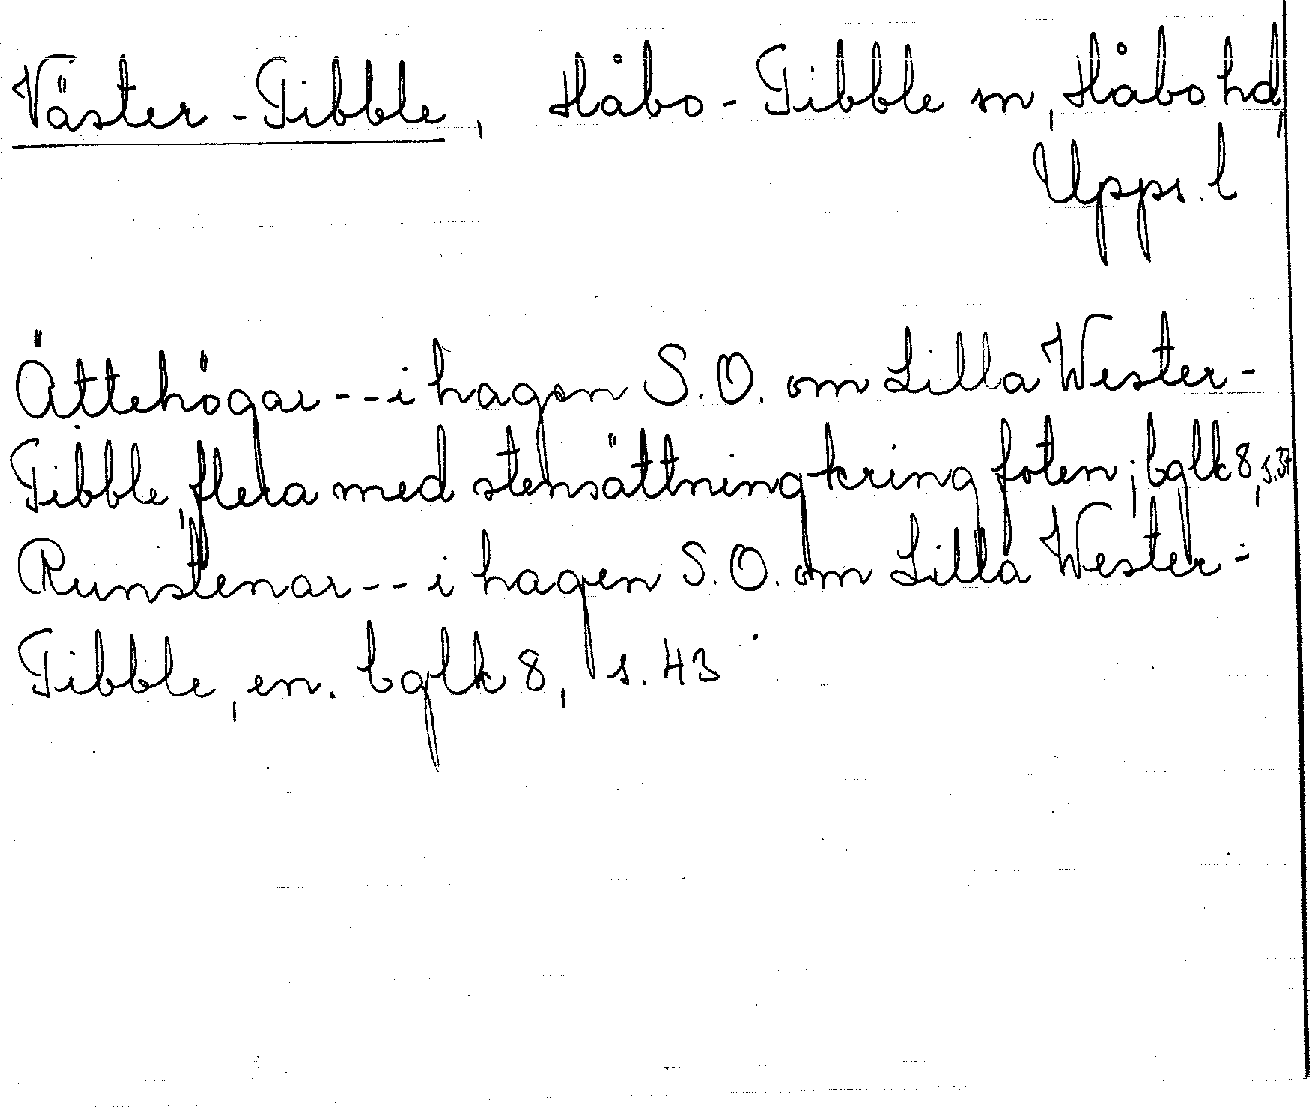 Väster-Tibble, Håbo-Tibble sn, Håbo hd,
Upps. l
Ättehögar -- i hagen S.O. om Lilla Wester-
Tibble, flera med stensättning kring foten; bglk 8, s.37
Runstenar -- i hagen S.O. om Lilla Wester-
Tibble, en. bglk 8, s. 43